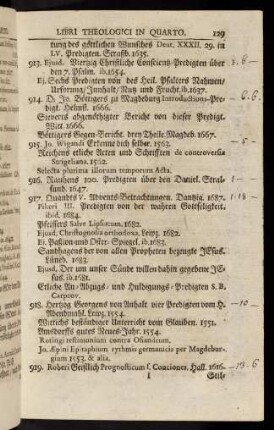 LIBRI THEOLOGICI IN QUARTO. 129
tung des göttlichen Wunsches Deut. XXXII. 29. in
LV. Predigten. Straßb. 1635.
913. Ejusd. Vierzig Christliche Conscienz-Predigten über
den 7. Psalm. ib. 1654.
Ej. Sechs Predigten von des Heil. Psalters Nahmen/
Ursprung/ Innhalt/ Nutz und Frucht. ib. 1637.
914. D. Jo. Böttigers zu Magdeburg Introductions-Pre-
digt. Helmst. 1666.
Sievers abgenöthigter Bericht von dieser Predigt.
Witt. 1666.
Böttigers Gegen-Bericht. drey Theile. Magdeb. 1667.
915. Jo. Wigandi Erkenne dich selber. 1562.
Reichens etliche Acten und Schrifften de controversia
Strigeliana. 1562.
Selecta plurima illorum temporum Acta.
916. Rauhens 100. Predigten über den Daniel. Stral-
sund. 1647.
917. Quandts V. Advents-Betrachtungen. Dantzig. 1687.
Fileri III. Predigten von der wahren Gottseligkeit.
ibid. 1684.
Pfeiffers Salve Lipsicum, 1682.
Ejusd. Christognosia orthodoxa. Leipz. 1682.
Ej. Passion und Oster-Spiegel. ib. 1683.
Sandhagens der von allen Propheten bezeugte JEsus.
Lüneb. 1683.
Ejusd. Der um unser Sünde willen dahin gegebene JE-
sus. ib. 1681.
Etliche An-Abzugs- und Huldigungs-Predigten S. B.
Carpzov.
918. Hertzog Georgens von Anhalt vier Predigten vom H.
Abendmahl. Leipz. 1554.
Dietrichs beständiger Unterricht vom Glauben. 1551.
Amsdorffs gutes Neues-Jahr. 1554.
Rotingi testimonium contra Osiandrum.
Jo. Æpini Epitaphium rythmis germanicis per Magdebur-
gium 1553. & alia.
919. Roberi Geistlich Prognosticum s. Conciones. Hall. 1616.
I Stil-